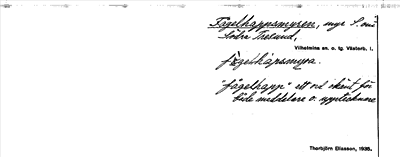 Fågelhappsmyren, myr S. om
Södra Tresund,
Vilhelmina sn. o. tg. Västerb. l.
fågelhápsmyra.
"fågelhapp" ett ord okänt för
både meddelare o. upptecknare
Thorbjörn Eliasson, 1935.